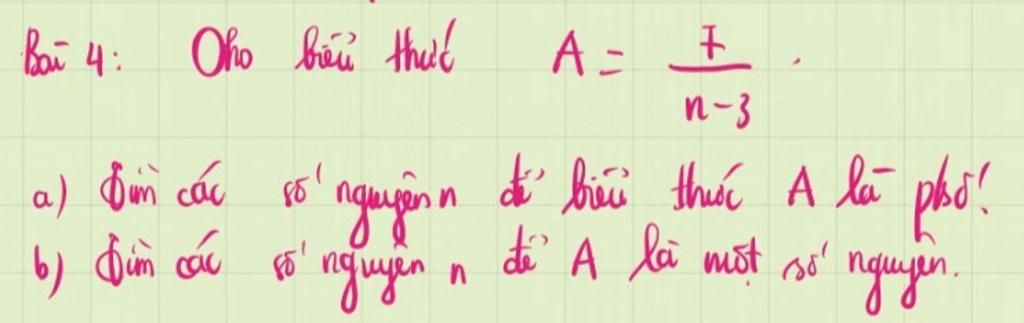 Bài 4: Cho biểu thức A = 7/(n-3).
a) Tìm các số nguyên n để biểu thức A là phsố!
b) Tìm các số nguyên n để A là một số nguyên.